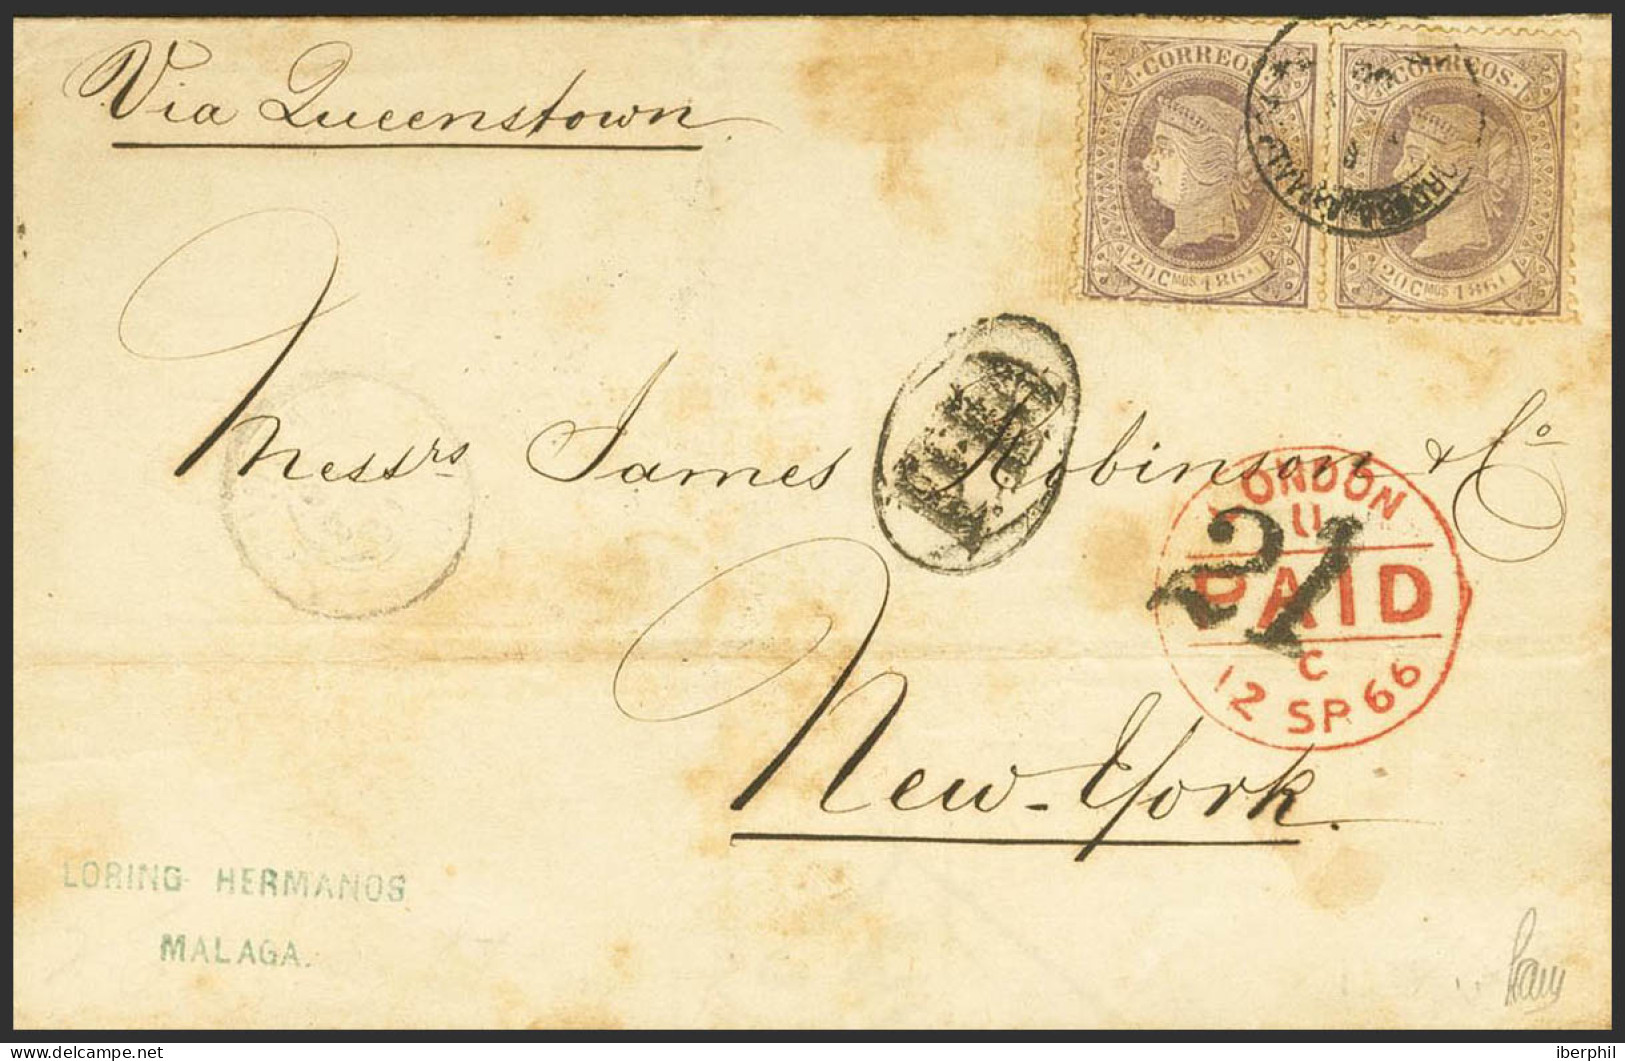 Via Queenstown
CORREOS
CORREOS
20 Cmos 1866
20 Cmos 1866
Messrs James Robinson & Co
LONDON
PAID
C
12 SP 66
21
New-York.
LORING HERMANOS
MALAGA.
iberphil
delcampe.net